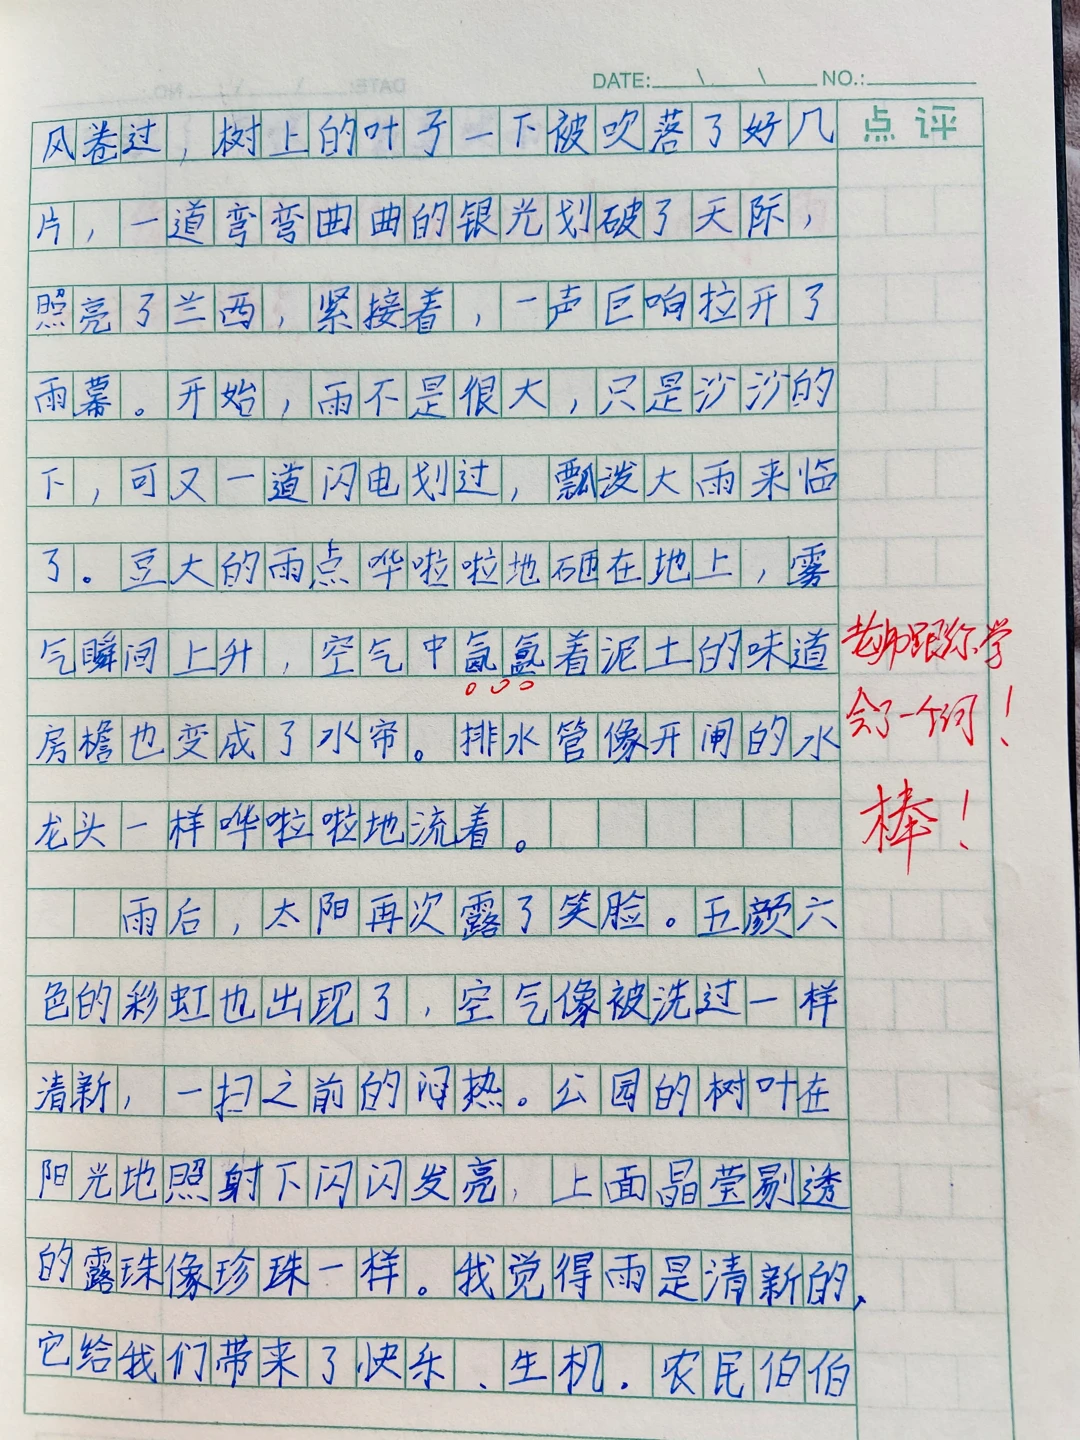 DATE: \ \ NO.:
点评
风卷过，树上的叶子一下被吹落了好几
片，一道弯弯曲曲的银光划破了天际，
照亮了兰西，紧接着，一声巨响拉开了
雨幕。开始，雨不是很大，只是沙沙的
下，可又一道闪电划过，瓢泼大雨来临
了。豆大的雨点哗啦啦地砸在地上，雾
气瞬间上升，空气中氤氲着泥土的味道
房檐也变成了水帘。排水管像开闸的水
龙头一样哗啦啦地流着。
雨后，太阳再次露了笑脸。五颜六
色的彩虹也出现了，空气像被洗过一样
清新，一扫之前的闷热。公园的树叶在
阳光地照射下闪闪发亮，上面晶莹剔透
的露珠像珍珠一样。我觉得雨是清新的，
它给我们带来了快乐、生机．农民伯伯
老师跟你学
会了一个词！
棒！